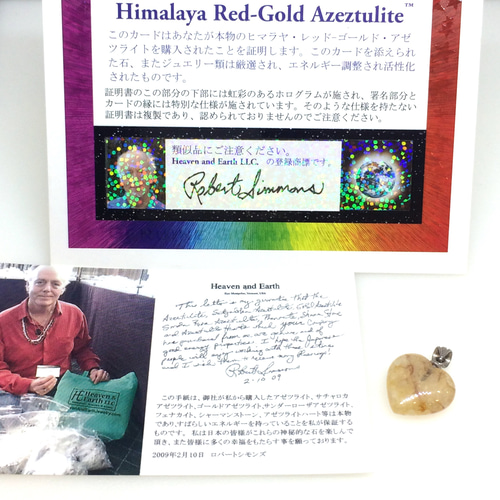 Himalaya Red-Gold Azeztulite™
このカードはあなたが本物のヒマラヤ・レッド-ゴールド・アゼ
ツライトを購入されたことを証明します。このカードを添えられ
た石、またジュエリー類は厳選され、エネルギー調整され活性化
されたものです。
証明書のこの部分の下部には虹彩のあるホログラムが施され、署名部分と
カードの縁には特別な仕様が施されています。そのような仕様を持たない
証明書は複製であり、認められておりませんのでご注意ください。
類似品にご注意ください。
Heaven and Earth LLC. の登録商標です。
Robert Simmons
Heaven and Earth
This letter is my guarantee that the
Azeztulite,
Azeztulite, Gold Azeztulite
and Azeztulite Hearts that your company
has purchased from us are genuine, and of
good energy properties. I hope the Japanese
people will enjoy working with these
and I wish them
Robert Simmons
2-10-09
Heaven &
Earth LLC
この手紙は、御社が私から購入したアゼツライト、サチャロカ
アゼツライト、ゴールドアゼツライト,サンダーローザアゼツライト、
フェナカイト、シャーマンストーン、アゼツライト・ハート等は本物
であり,すばらしいエネルギーを持っていることを私が保証する
ものです。 私は日本の皆様がこれらの神秘的な石を楽しんで
頂き、また皆様に多くの幸福をもたらす事を願っております。
2009年2月10日 ロバートシモンズ